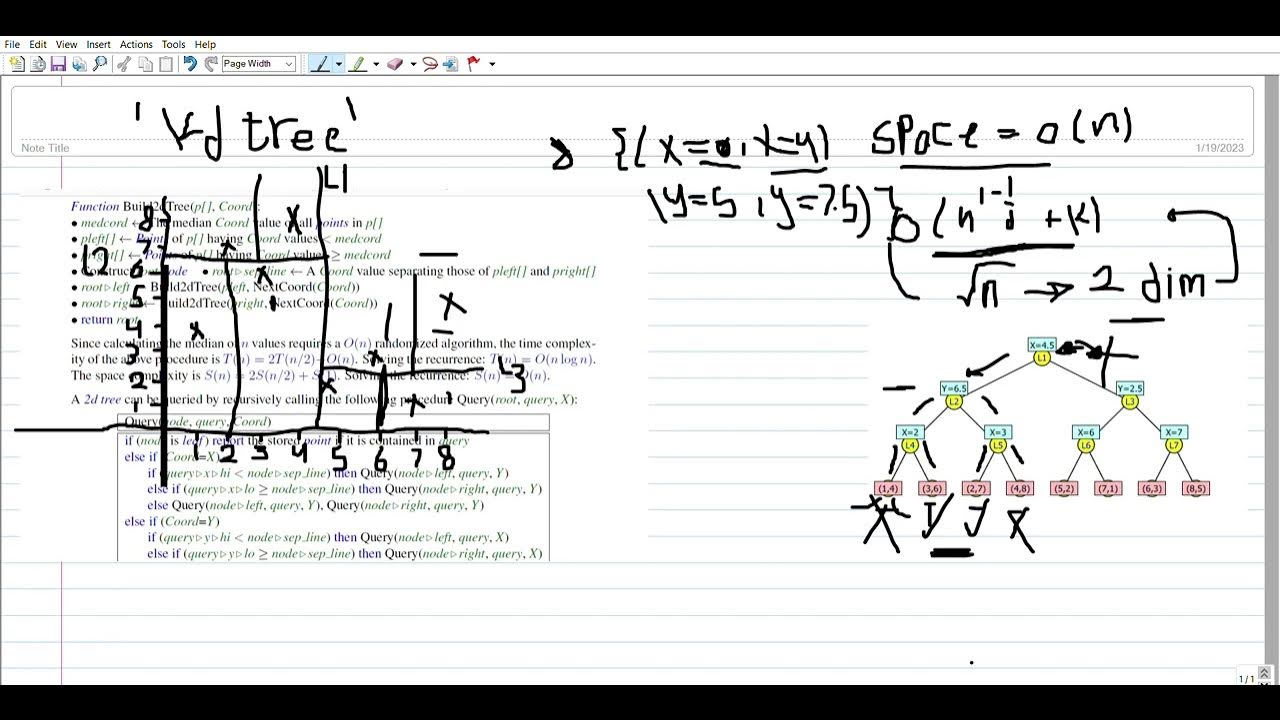 File Edit View Insert Actions Tools Help
Page Width
'Kd tree'
Note Title
1/19/2023
{(x= , x=4)
(y=5 , y=7.5)}
space = o(n)
O(n^1-1/d + k)
√n → 2 dim
L1
L3
8
7
6
5
4
3
2
1
1 2 3 4 5 6 7 8
Function Build2dTree(p[], Coord):
• medcord ← The median Coord value of all points in p[]
• pleft[] ← Points of p[] having Coord values < medcord
• pright[] ← Points of p[] having Coord values ≥ medcord
• root▹sep_line ← A Coord value separating those of pleft[] and pright[]
• root▹left ← Build2dTree(pleft, NextCoord(Coord))
• root▹right ← Build2dTree(pright, NextCoord(Coord))
• return root
Since calculating the median of n values requires a O(n) randomized algorithm, the time complex-
ity of the above procedure is T(n) = 2T(n/2)+O(n). Solving the recurrence: T(n) = O(n log n).
The space complexity is S(n) = 2S(n/2) + S(1). Solving the recurrence: S(n) = O(n).
A 2d tree can be queried by recursively calling the following procedure Query(root, query, X):
Query(node, query, Coord)
if (node is leaf) report the stored point if it is contained in query
else if (Coord=X)
if (query▹x▹hi < node▹sep_line) then Query(node▹left, query, Y)
else if (query▹x▹lo ≥ node▹sep_line) then Query(node▹right, query, Y)
else Query(node▹left, query, Y), Query(node▹right, query, Y)
else if (Coord=Y)
if (query▹y▹hi < node▹sep_line) then Query(node▹left, query, X)
else if (query▹y▹lo ≥ node▹sep_line) then Query(node▹right, query, X)
X=4.5
L1
Y=6.5 Y=2.5
L2 L3
X=2 X=3 X=6 X=7
L4 L5 L6 L7
(1,4) (3,6) (2,7) (4,8) (5,2) (7,1) (6,3) (8,5)
1/1